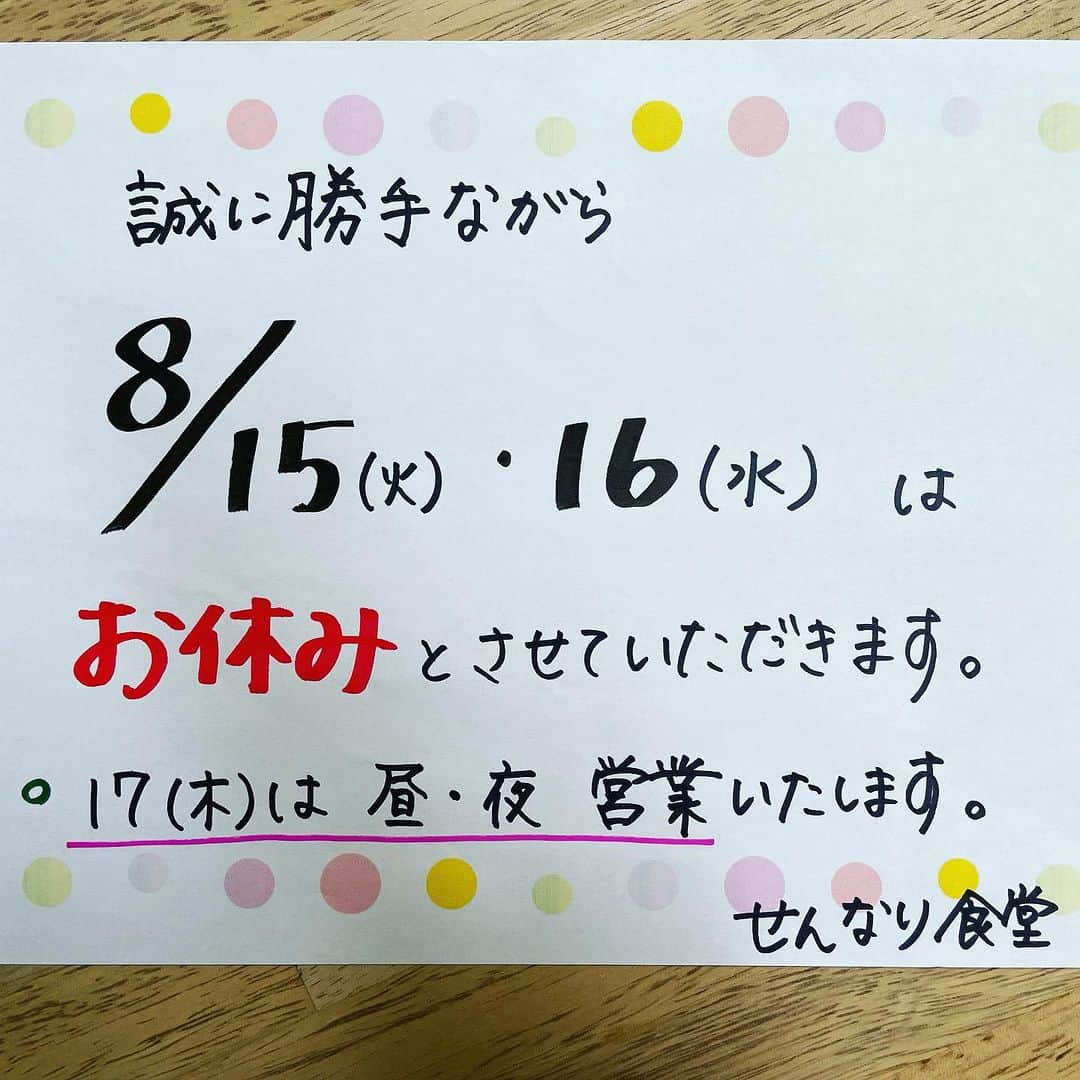 誠に勝手ながら
8/15(火)・16(水) は
お休みとさせていただきます。
○17(木)は 昼・夜 営業いたします。
せんなり食堂